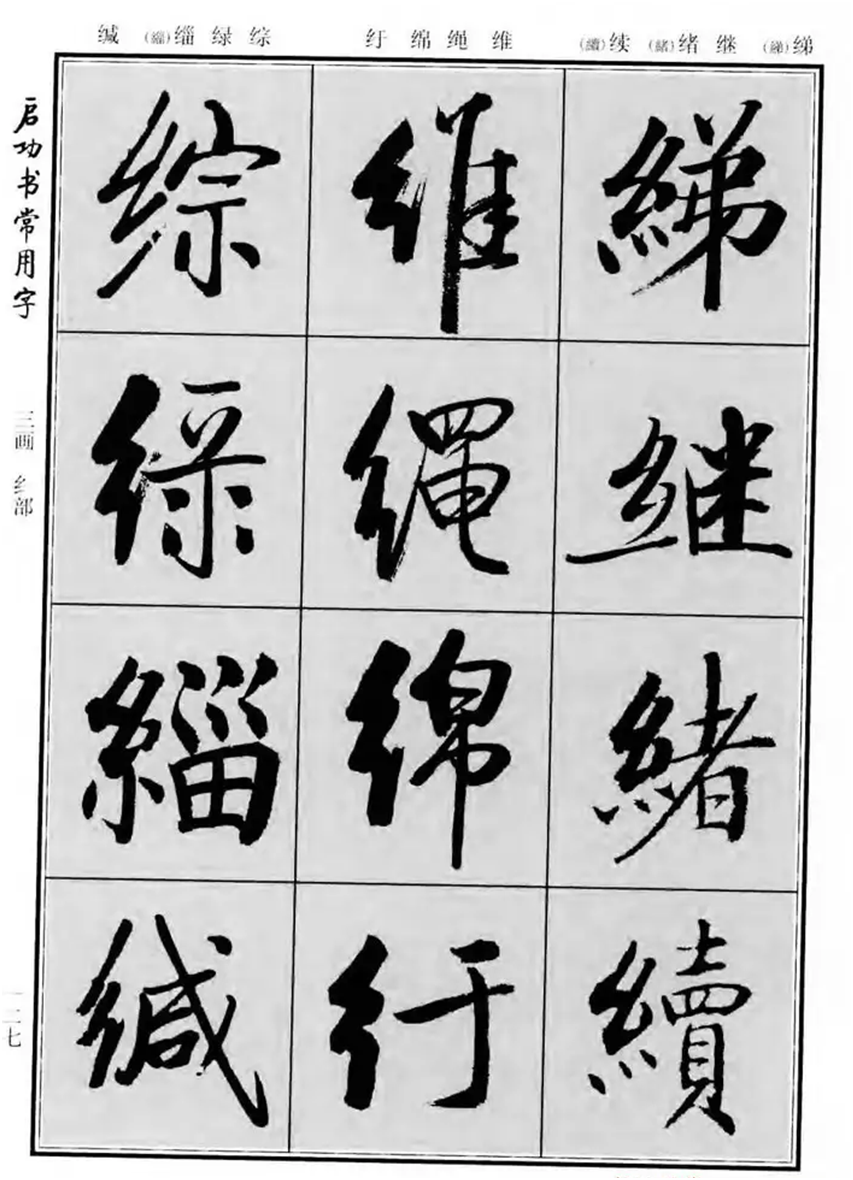 绨(綈)继绪(緒)续(續)
维绳绵纡
综绿缁(緇)缄
綈继緒續
维绳绵纡
综绿緇缄
启功书常用字
三画 纟部
一二七